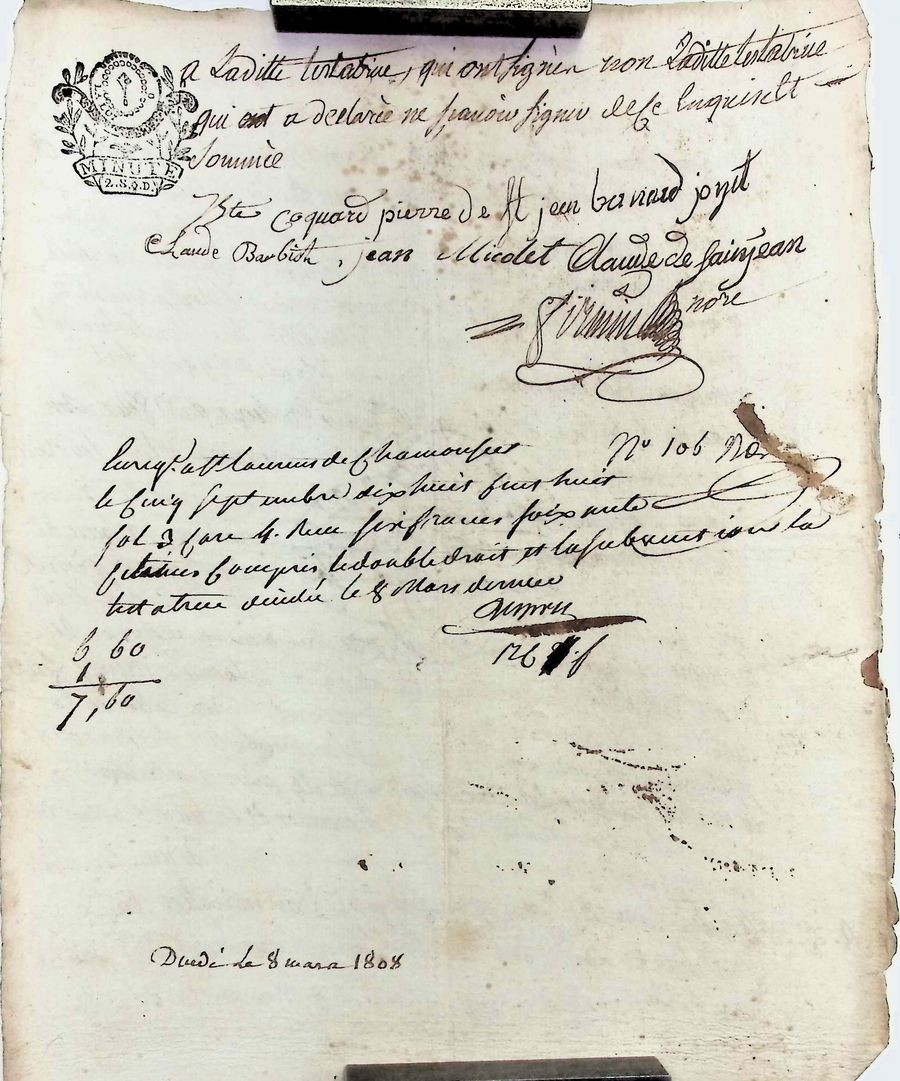 a Laditte testatrice, qui ont signér non Laditte testatrice
qui est a declarée ne sçavoir signer de ce Enquise Et
Sommée
MINUTE
2.S.Q.D.
Coquard pierre de jean bernard
Claude Barbish, jean Micolet Claude de Sainjean
nore
Enreg.t a St Laurens de Chamousset No 106
le Cinq Septembre dix huit Cens huit
fol 3 Case 4. Reçu Six francs Soixante
Centimes Compris le double droit et la Subvention la
testatrice dcédée le 8 Mars dernier
6 60
1
7,60
Dcedé Le 8 mars 1808